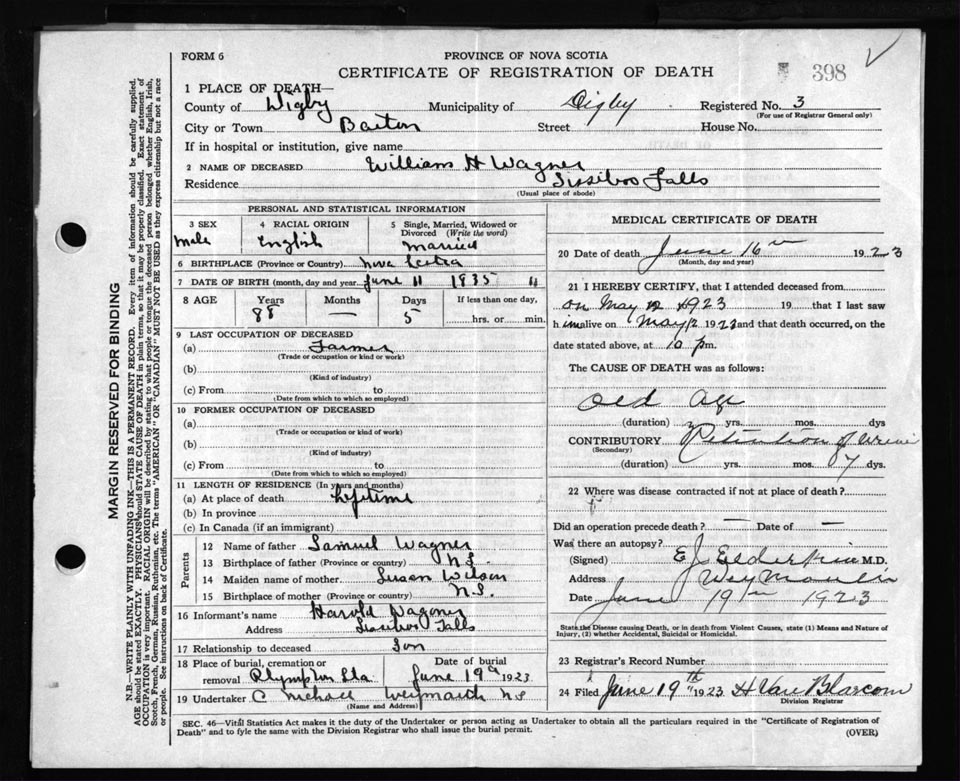 FORM 6
PROVINCE OF NOVA SCOTIA
CERTIFICATE OF REGISTRATION OF DEATH
398
1 PLACE OF DEATH—
County of Digby Municipality of Digby Registered No. 3
(For use of Registrar General only)
City or Town Barton Street House No.
If in hospital or institution, give name
2 NAME OF DECEASED William H Wagner
Residence Sissiboo Falls
(Usual place of abode)
PERSONAL AND STATISTICAL INFORMATION
3 SEX 4 RACIAL ORIGIN 5 Single, Married, Widowed or Divorced (Write the word)
Male English Married
6 BIRTHPLACE (Province or Country) Nova Scotia
7 DATE OF BIRTH (month, day and year) June 11 1835 11
8 AGE Years Months Days If less than one day,
88 — 5 hrs. or min.
9 LAST OCCUPATION OF DECEASED
(a) Farmer
(Trade or occupation or kind or work)
(b)
(Kind of industry)
(c) From to
(Date from which to which so employed)
10 FORMER OCCUPATION OF DECEASED
(a)
(Trade or occupation or kind of work)
(b)
(Kind of industry)
(c) From to
(Date from which to which so employed)
11 LENGTH OF RESIDENCE (In years and months)
(a) At place of death lifetime
(b) In province
(c) In Canada (if an immigrant)
Parents
12 Name of father Samuel Wagner
13 Birthplace of father (Province or country) N.S.
14 Maiden name of mother Susan Wilson
15 Birthplace of mother (Province or country) N.S.
16 Informant's name Harold Wagner
Address Sissiboo Falls
17 Relationship to deceased Son
18 Place of burial, cremation or removal Plympton Sta Date of burial June 19th 1923
19 Undertaker C Weymouth N S
(Name and Address)
MEDICAL CERTIFICATE OF DEATH
20 Date of death June 16th 1923
(Month, day and year)
21 I HEREBY CERTIFY, that I attended deceased from
on May 12 1923 19 that I last saw
him alive on May 12 1923 and that death occurred, on the
date stated above, at 10 pm.
The CAUSE OF DEATH was as follows:
Old Age
(duration) yrs. mos. dys
CONTRIBUTORY Retention of urine
(Secondary)
(duration) yrs. mos. 7 dys.
22 Where was disease contracted if not at place of death?
Did an operation precede death? — Date of —
Was there an autopsy?
(Signed) E J Elderkin M.D.
Address Weymouth
Date June 19th 1923
State the Disease causing Death, or in death from Violent Causes, state (1) Means and Nature of
Injury, (2) whether Accidental, Suicidal or Homicidal.
23 Registrar's Record Number
24 Filed June 19th 1923 H Van Blarcom
Division Registrar
SEC. 46—Vital Statistics Act makes it the duty of the Undertaker or person acting as Undertaker to obtain all the particulars required in the "Certificate of Registration of
Death" and to fyle the same with the Division Registrar who shall issue the burial permit.
(OVER)
MARGIN RESERVED FOR BINDING
N.B.—WRITE PLAINLY WITH UNFADING INK—THIS IS A PERMANENT RECORD. Every item of information should be carefully supplied.
AGE should be stated EXACTLY. PHYSICIANS should STATE CAUSE OF DEATH in plain terms, so that it may be properly classified. Exact statement of
OCCUPATION is very important. RACIAL ORIGIN will be described by stating to what people or tongue the deceased person belonged whether English, Irish,
Scotch, French, German, Russian, Ruthenian, etc. The terms "AMERICAN" OR "CANADIAN" MUST NOT BE USED as they express citizenship but not a race
or people. See instructions on back of Certificate.